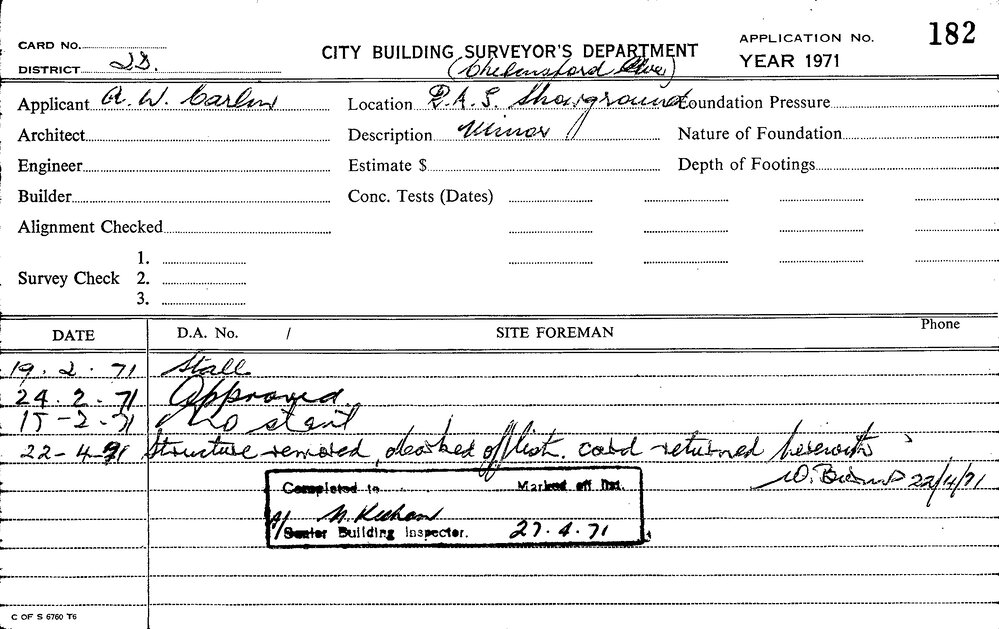 CARD NO.
DISTRICT
CITY BUILDING SURVEYOR'S DEPARTMENT
(Chelmsford Ave)
APPLICATION NO. 182
YEAR 1971
Applicant A. W. Carlin
Location R.A.S. Showground
Foundation Pressure
Architect
Description Minor
Nature of Foundation
Engineer
Estimate $
Depth of Footings
Builder
Conc. Tests (Dates)
Alignment Checked
Survey Check
1.
2.
3.
DATE D.A. No. / SITE FOREMAN Phone
19.2.71 Stall
24.2.71 Approved
15-2-71 No start
22-4-71 Structure removed, marked off list. card returned herewith
22/4/71
Completed to Marked off list.
A/ Senior Building Inspector. 27.4.71
C OF S 6760 T6